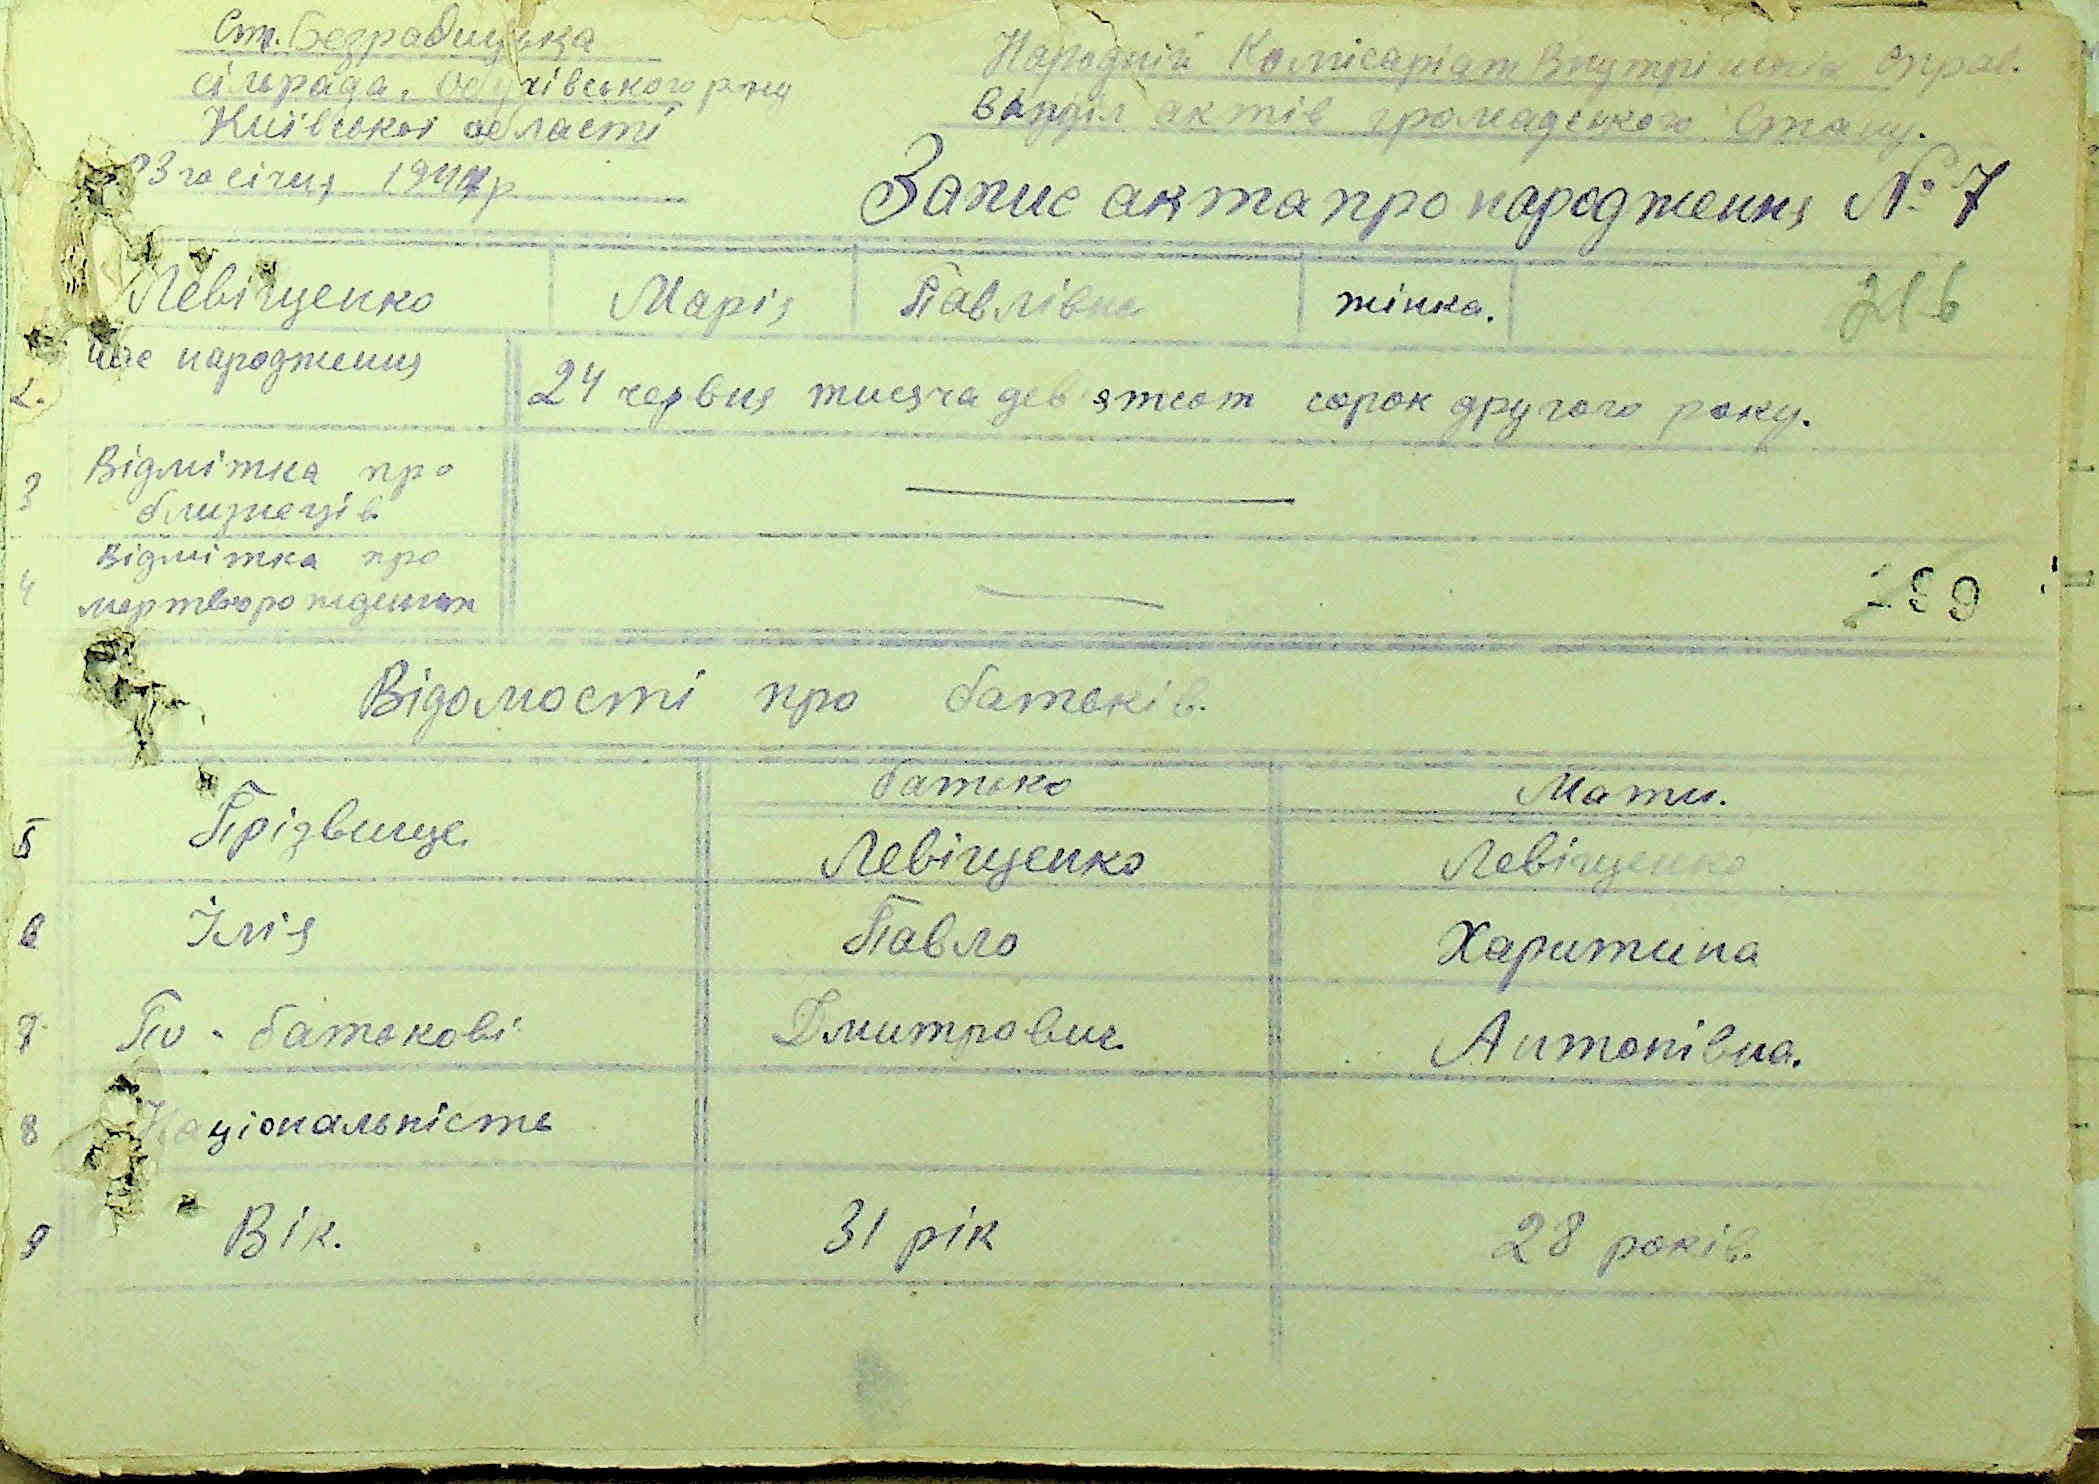 Ст. Безрадицька
сільрада, Обухівського р-ну
Київської області
23 го січня 1944 р
Народній Комісаріат Внутрішніх Справ.
відділ актів громадського Стану.
Запис акта про народження № 7
Левіщенко Марія Павлівна жінка. 216
2. час народження 24 червня тисяча дев'ятсот сорок другого року.
3 Відмітка про
близнеців
4 Відмітка про
мертворождених
Відомості про батьків.
батько Мати.
5 Прізвище. Левіщенко Левіщенко
6 Імія Павло Харитина
7 По-батькові Дмитрович. Антонівна.
8 Національність
9 Вік. 31 рік 28 років.